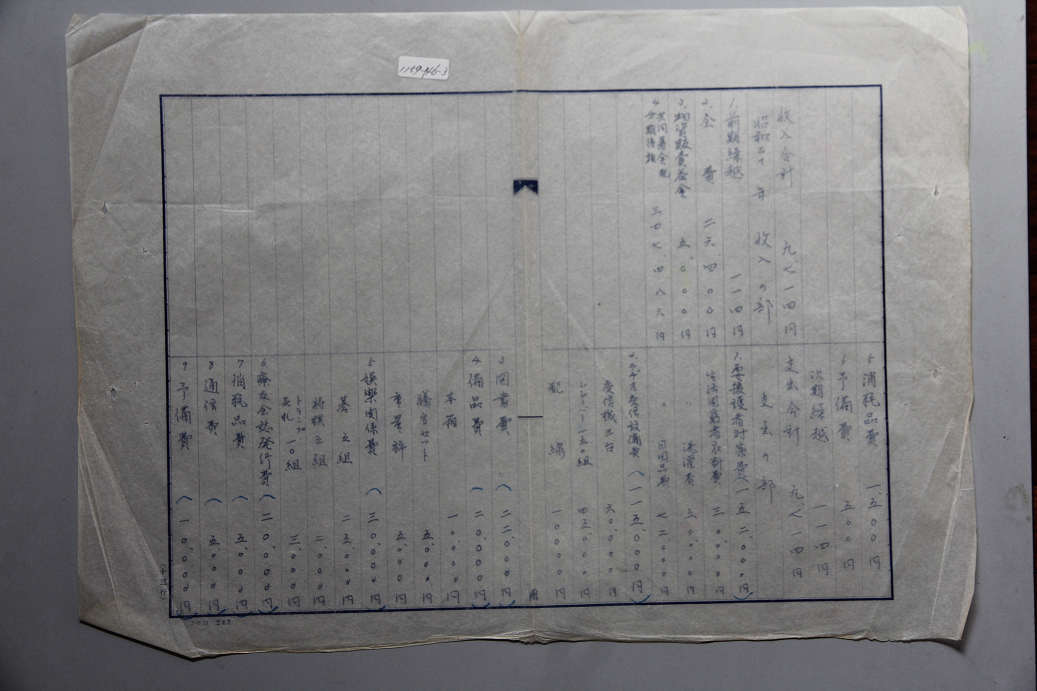 1149-46-3
5. 消耗品費 一、五〇〇円
6. 予備費 五〇〇円
次期繰越 一一四円
支出合計 九、七一四円
収入合計 九、七一四円
昭和 年 収入の部
1. 前期繰越 一一四円
2. 会費 二六四〇〇円
3. 物資販賣益金 五、〇〇〇円
4. 共同募金
三四七、四八六円
支出の部
1. 要援護者対策費 (一五二、〇〇〇円)
生活困窮者衣料費 三〇、〇〇〇円
〃 洗濯費
〃 日用品費 七二、〇〇〇円
(一一五、〇〇〇円)
受信機 一台 六〇、〇〇〇円
レシーバー 一五〇組 四五、〇〇〇円
配線 一〇、〇〇〇円
3. 図書費 (二二、〇〇〇円)
4. 備品費 (二〇、〇〇〇円)
本箱 一〇、〇〇〇円
膳写セット 五、〇〇〇円
重量秤 五、〇〇〇円
5. 娯楽関係費 (三〇、〇〇〇円)
碁 五組 二五、〇〇〇円
将棋 五組 二、〇〇〇円
トランプ
花札 一〇組 三、〇〇〇円
6. 療友会誌発行費 (二〇、〇〇〇円)
7. 消耗品費 (五、〇〇〇円)
8. 通信費 (五、〇〇〇円)
9. 予備費 (一〇、〇〇〇円)